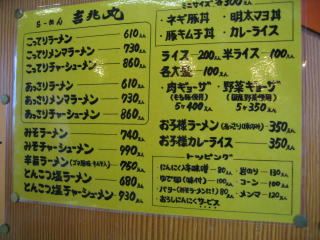 らーめん 吉兆丸
こってりラーメン 610えん
こってりメンマラーメン 730えん
こってりチャーシューメン 860えん
あっさりラーメン 610えん
あっさりメンマラーメン 730えん
あっさりチャーシューメン 860えん
みそラーメン 740えん
みそチャーシューメン 990えん
辛旨ラーメン 750えん
とんこつ塩ラーメン 680えん
とんこつ塩チャーシューメン 930えん
ミニサイズ 各300えん
・ネギ豚丼 ・明太マヨ丼
・豚キムチ丼 ・カレーライス
ライス…200えん 半ライス…100えん
各大盛…100えん
・肉ギョーザ ・野菜ギョーザ
5ヶ400えん 5ヶ350えん
お子様ラーメン 350えん
お子様カレーライス 350えん
トッピング
・にんにく辛味噌…80えん ・岩のり…130えん
・ゆで卵(味付)…100えん ・コーン…100えん
・バター 80えん ・メンマ…120えん
・おろしにんにくサービス